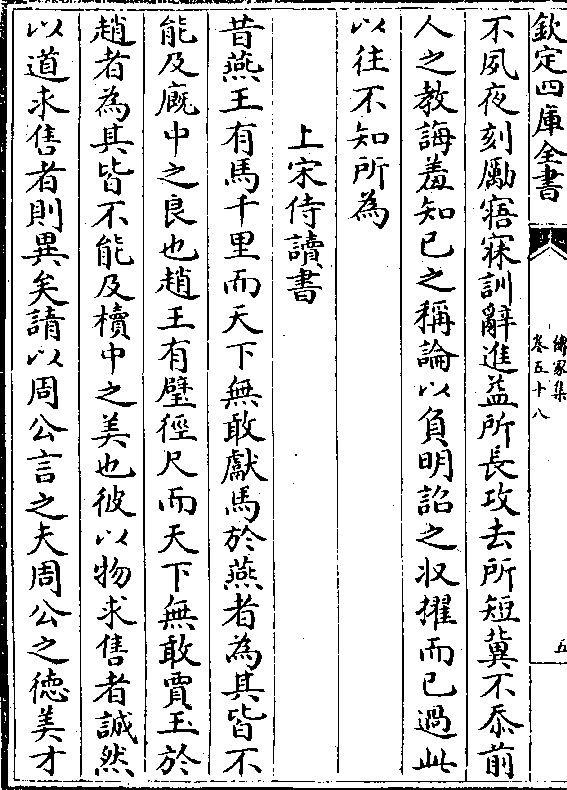 欽定四庫全書
傳家集
卷五十八
五
不夙夜刻勵寤寐訓辭進益所長攻去所短冀不忝前
人之教誨羞知己之稱論以負明詔之收擢而已過此
以往不知所為
上宋侍讀書
昔燕王有馬千里而天下無敢獻馬於燕者為其皆不
能及廐中之良也趙王有璧徑尺而天下無敢賈玉於
趙者為其皆不能及櫝中之美也彼以物求售者誠然
以道求售者則異矣請以周公言之夫周公之徳美才